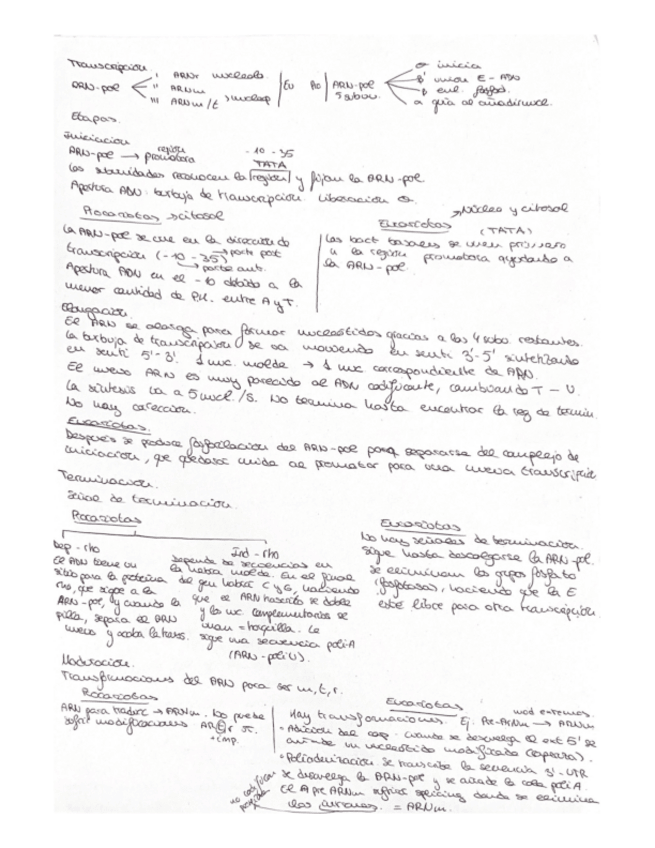 Transcripción.
ARN-pol
I ARNr nucleolo
II ARNm
III ARNm/t > nucleop
Eu
Pro
ARN-pol
5 subun.
σ inicia
β' union E - ADN
β enl. fosfod.
α guía al añadir nucl.
Etapas.
Iniciacion
ARN-pol → región promotora
-10 -35
TATA
Las subunidades reconocen la región y fijan la ARN-pol
Apertura ADN: burbuja de transcripción. Liberacion σ.
Procariotas → citosol
La ARN-pol se une en la dirección de
transcripción (-10 -35) → parte post
→ parte ant.
Apertura ADN en el -10 debido a la
menor cantidad de P.H. entre A y T.
→ Núcleo y citosol
Eucariotas
(TATA)
Los fact basales se unen primero
a la región promotora ayudando a
la ARN-pol.
Elongación.
El ARN se alarga para formar nucleótidos gracias a las 4 subu. restantes.
La burbuja de transcripción se va moviendo en senti 3'-5' sintetizando
en senti 5'-3'. 1 nuc. molde → 1 nuc correspondiente de ARN.
El nuevo ARN es muy parecido al ADN codificante, cambiando T - U.
La síntesis va a 5 nucl./s. No termina hasta encontrar la reg de termin.
No hay corrección.
Eucariotas.
Después se produce fosforilación del ARN-pol para separarse del complejo de
iniciación, que quedará unido al promotor para una nueva transcripción
Terminación.
Señal de terminación.
Procariotas
Dep - rho
El ADN tiene un
sitio para la proteína
rho, que sigue a la
ARN-pol, y cuando la
pilla, separa el ARN
nuevo y acaba la trans.
Ind - rho
Depende de secuencias en
la hebra molde. En el final
del gen habrá C y G, haciendo
que el ARN transcrito se doble
y los nuc complementarios se
unan = horquilla. Le
sigue una secuencia poli A
(ARN - poli U).
Eucariotas
No hay señales de terminación.
Sigue hasta descolgarse la ARN-pol.
Se eliminan los grupos fosfato
(fosfatasas), haciendo que la E
esté libre para otra transcripción.
Maduración.
Transformaciones del ARN para ser m, t, r.
Procariotas
ARN para traducir → ARNm. No puede
sufrir modificaciones
Eucariotas
mod extremos.
Hay transformaciones. Ej. Pre-ARNm → ARNm
· Adición del cap. cuando se descuelga el ext 5' se
añade un nucleótido modificado (caperuza).
· Poliadenización se transcribe la secuencia 3'-UTR
se descuelga la ARN-pol y se añade la cola poli A.
El pre ARNm sufrirá splicing donde se eliminan
los intrones. = ARNm.
no codifican